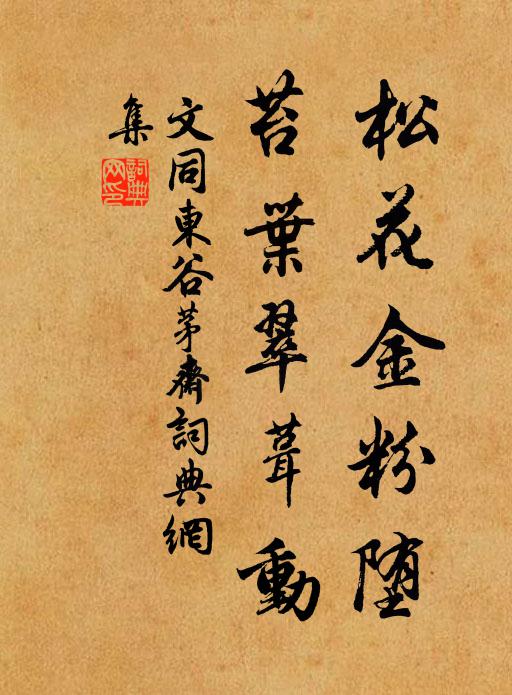 松花金粉堕
苔葉翠葺動
文同東谷茅齋詞典網
集
詞典網印